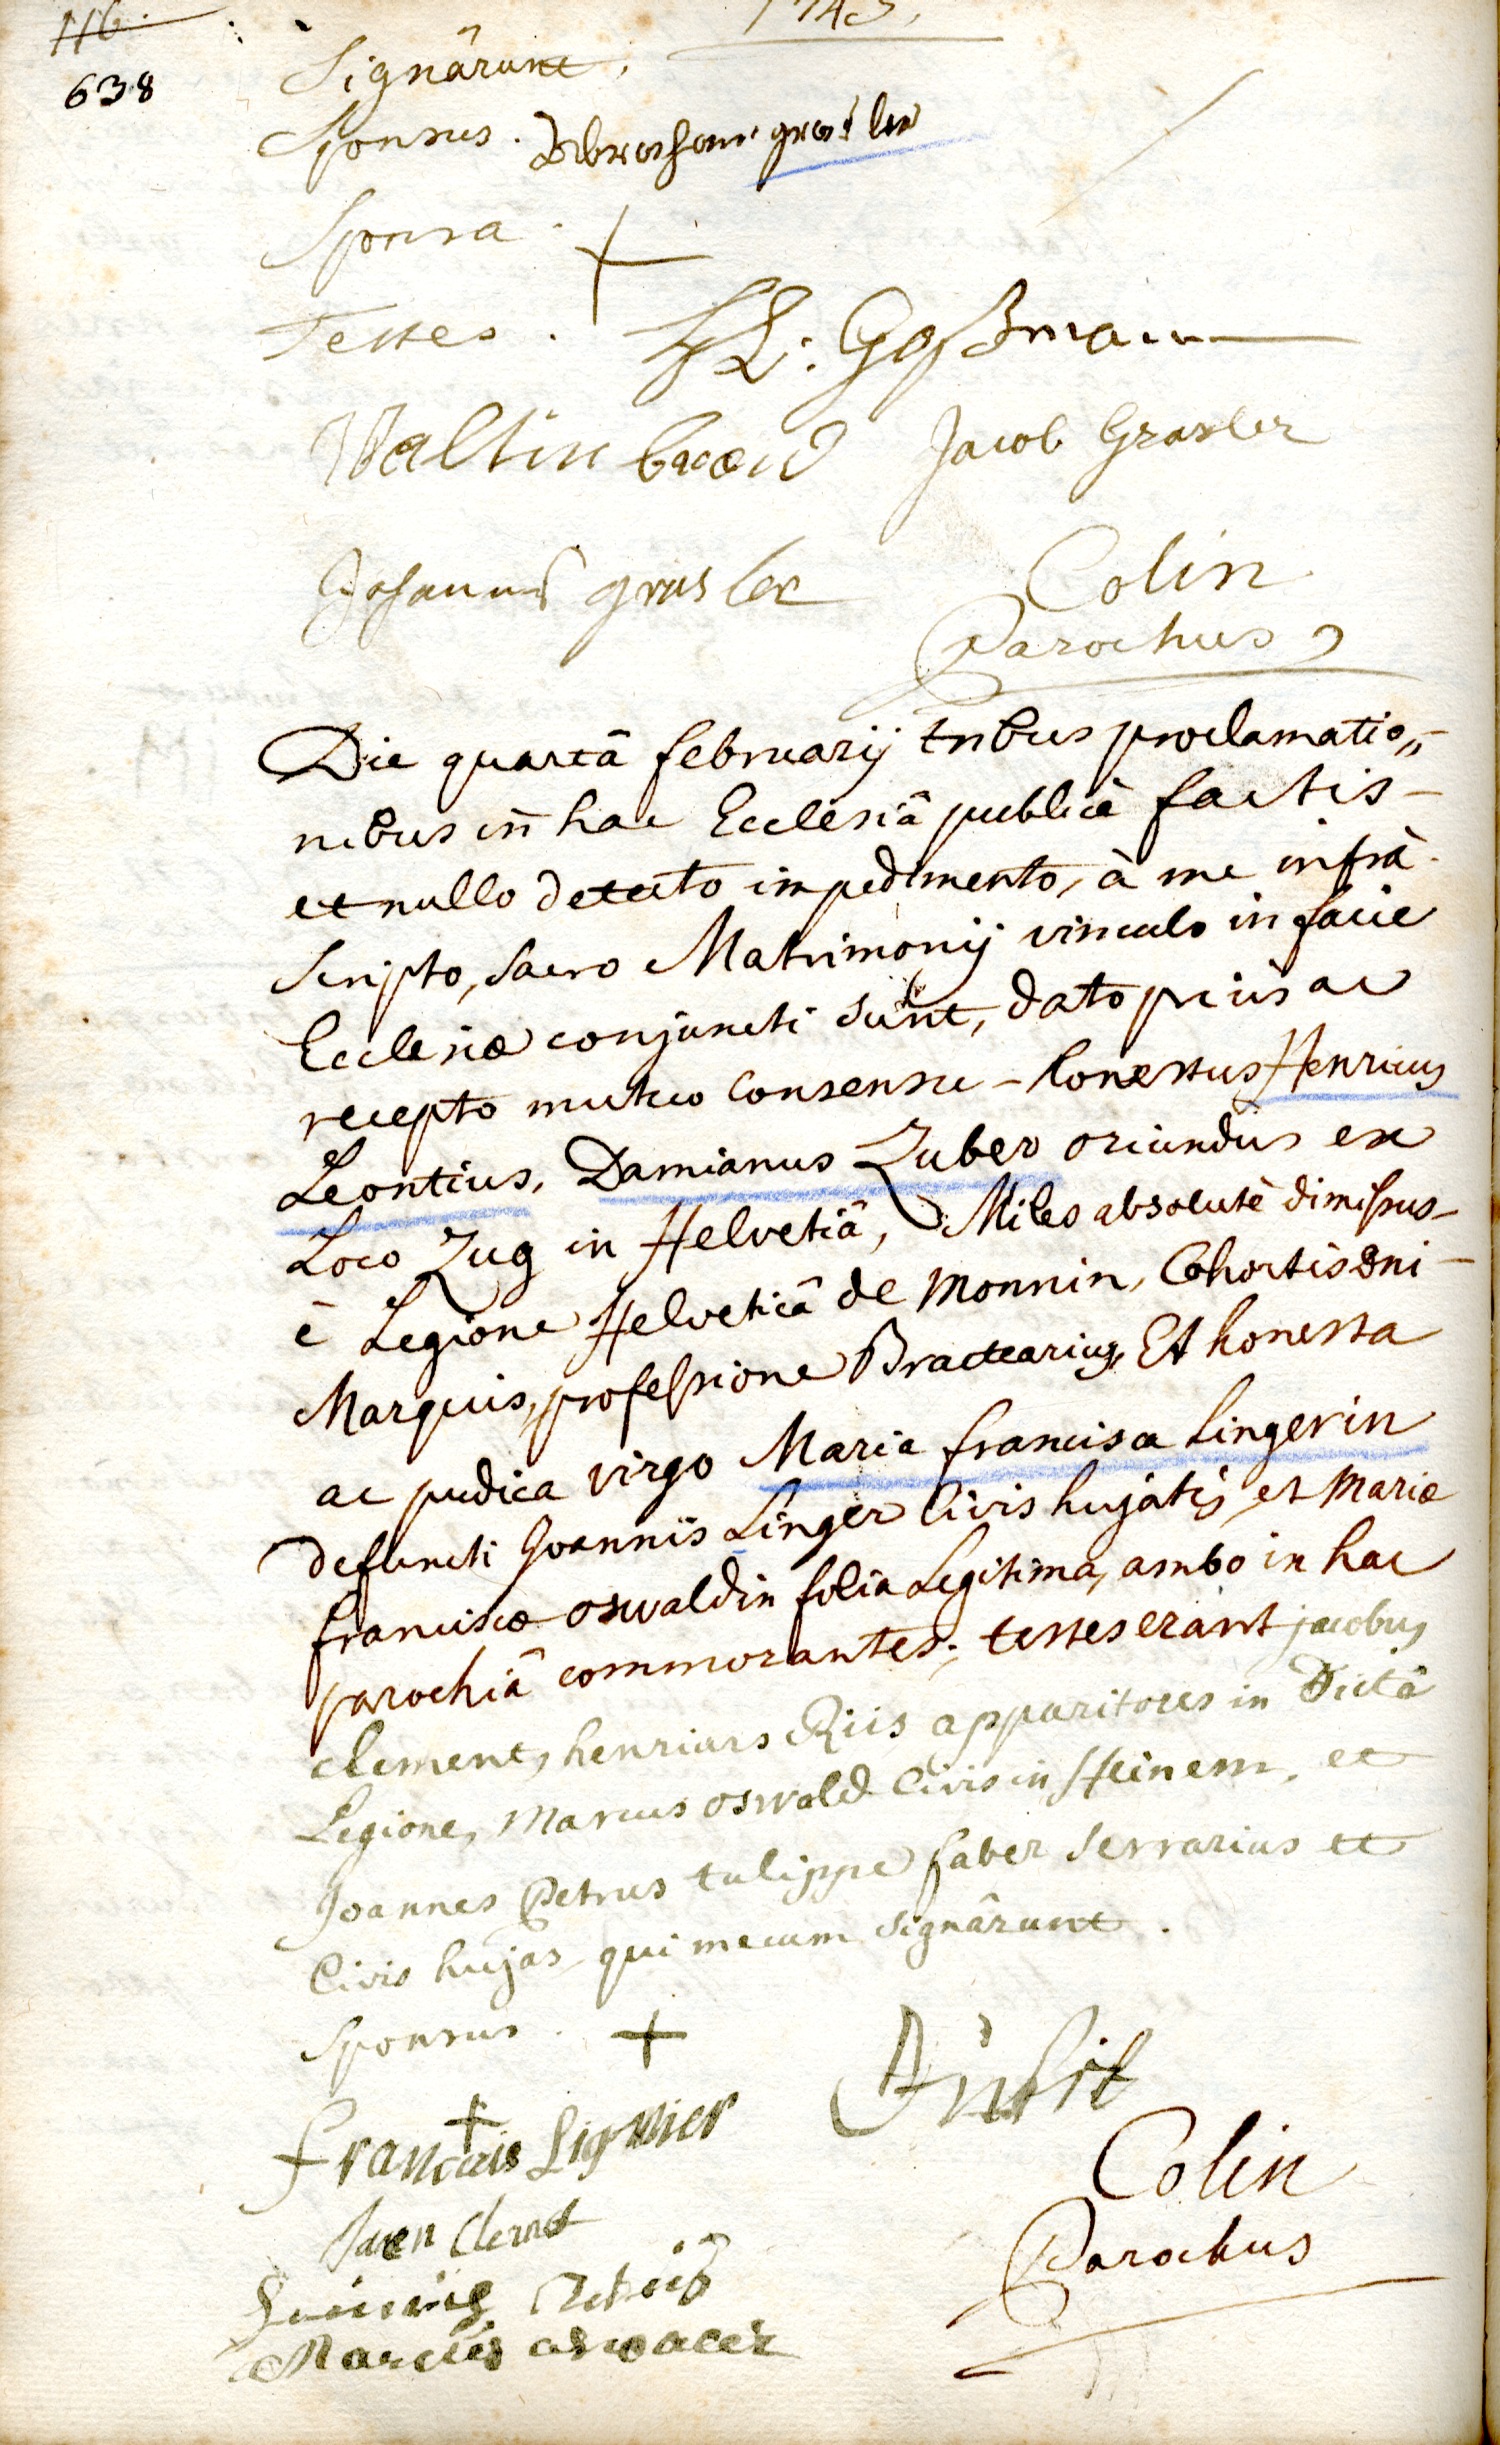 116.
638
1745.
Signârunt,
Sponsus. Abraham grasler
Sponsa.
Testes. Goßmann
Waltin Jacob Grasler
Johannes grasler Colin
Parochus
Die quartâ februarij tribus proclamatio„
nibus in hac Ecclesiâ publicè factis –
et nullo detecto impedimento, à me infrà
scripto, sacro Matrimonij vinculo in facie
Ecclesiæ conjuncti sunt, dato priùs ac
recepto mutuo consensu – honestus Henricus
Leontius, Damianus Zuber oriundus ex
Loco Zug in Helvetiâ, Miles absolutè dimissus –
è Legione Helveticâ de Monnin, Cohortis dni –
Marquis, professione Bractearius, Et honesta
ac pudica virgo Maria francisca Lingerin
defuncti Joannis Linger Civis hujatis, et Mariæ
franciscæ oswaldin filia Legitima, ambo in hac
parochiâ commorantes; testes erant jacobus
clement, henricus Riis apparitores in Dictâ
Legione, Marcus oswald Civis in steinem, et
Joannes Petrus tulippe faber serrarius et
Civis hujas qui mecum signârunt.
Sponsus. +
francais Lignier
Colin
Clemet
Parochus
Marcus